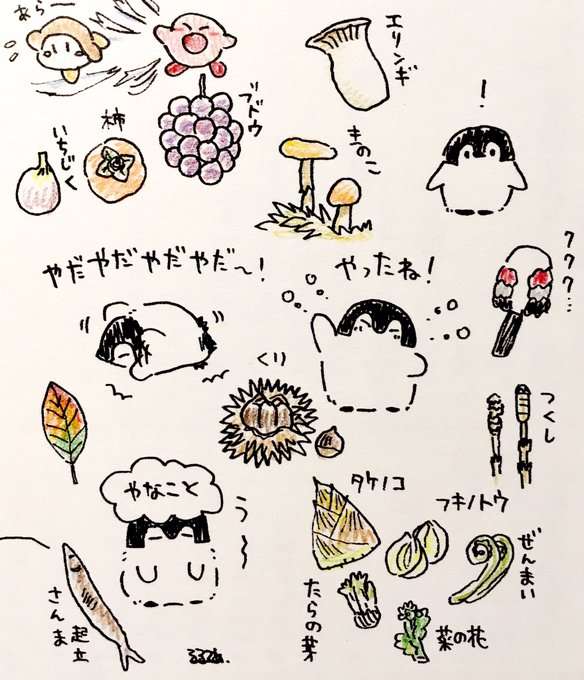 あらー
エリンギ
ブドウ
柿
いちじく
きのこ
！
ククク…
やだやだやだやだ〜！
やったね！
くり
つくし
やなこと
う〜
タケノコ
フキノトウ
ぜんまい
たらの芽
菜の花
さんま
起立
るるてあ.